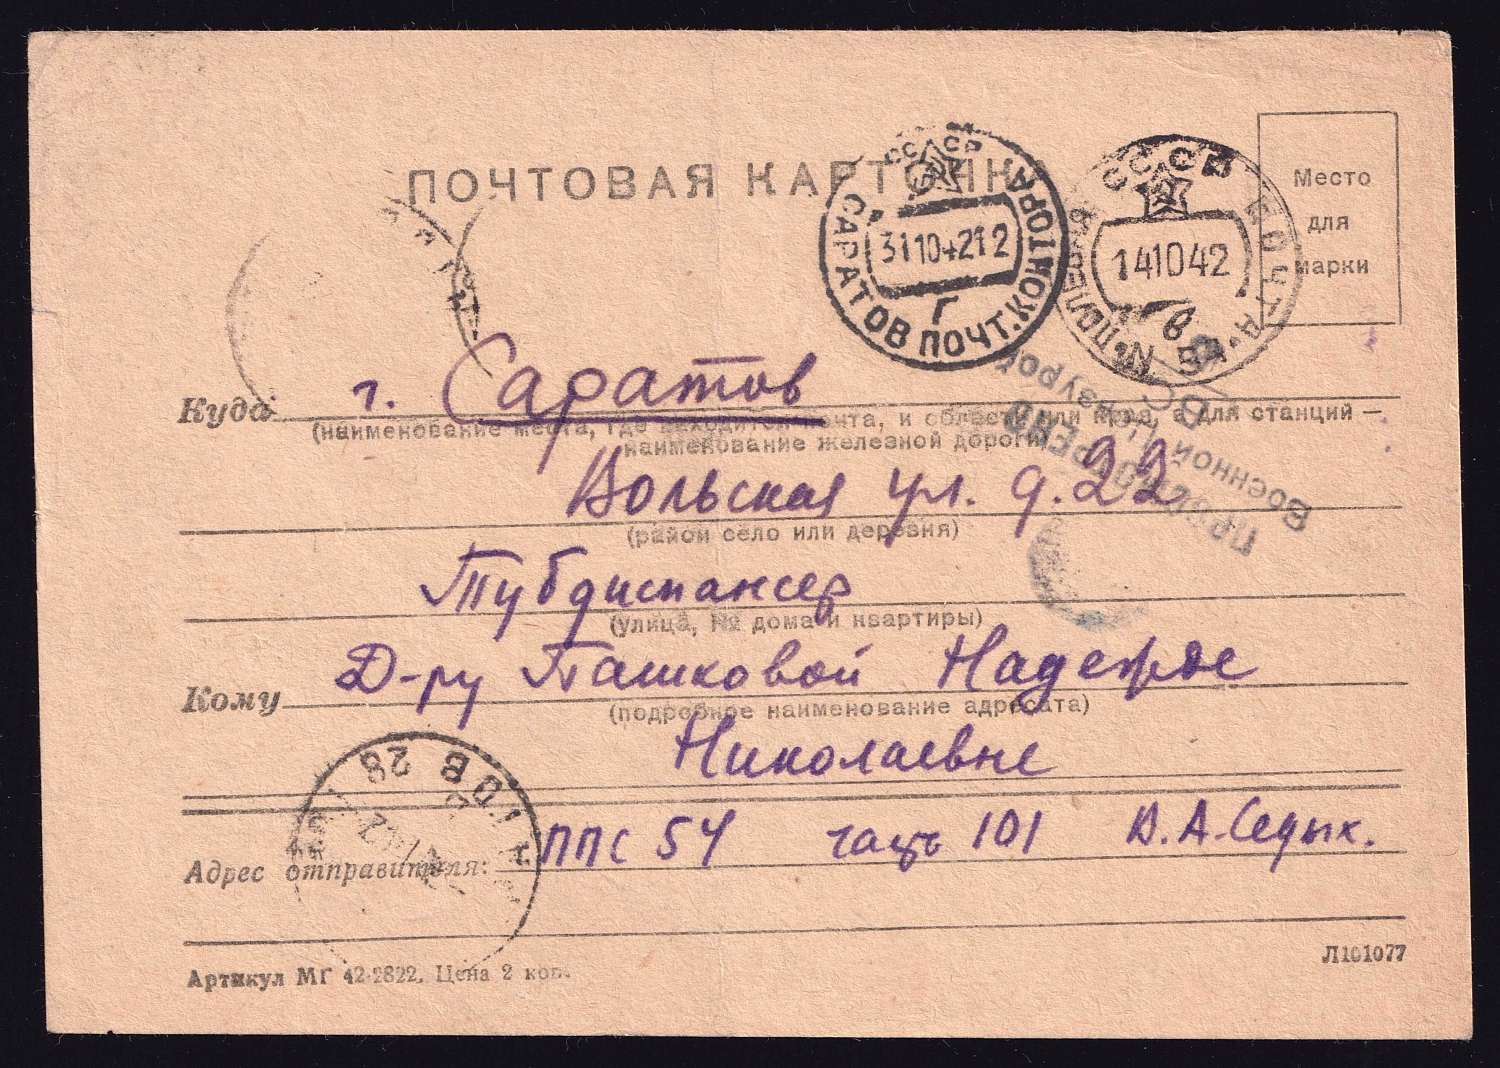 ПОЧТОВАЯ КАРТОЧКА
СССР
САРАТОВ ПОЧТ. КОНТОРА
31 10 42 12
Г
СССР
ПОЛЕВАЯ ПОЧТА
14 10 42
№ 54
Место
для
марки
Куда г. Саратов
(наименование места, где находится почта, и область или края, а для станций —
наименование железной дороги)
Вольская ул. д. 22
(район село или деревня)
Тубдиспансер
(улица, № дома и квартиры)
Кому Д-ру Пашковой Надежде
(подробное наименование адресата)
Николаевне
ПРОСМОТРЕНО
Военной Цензурой
Адрес отправителя: ППС 54 часть 101 В. А. Седых.
Артикул МГ 42-2822. Цена 2 коп.
Л101077